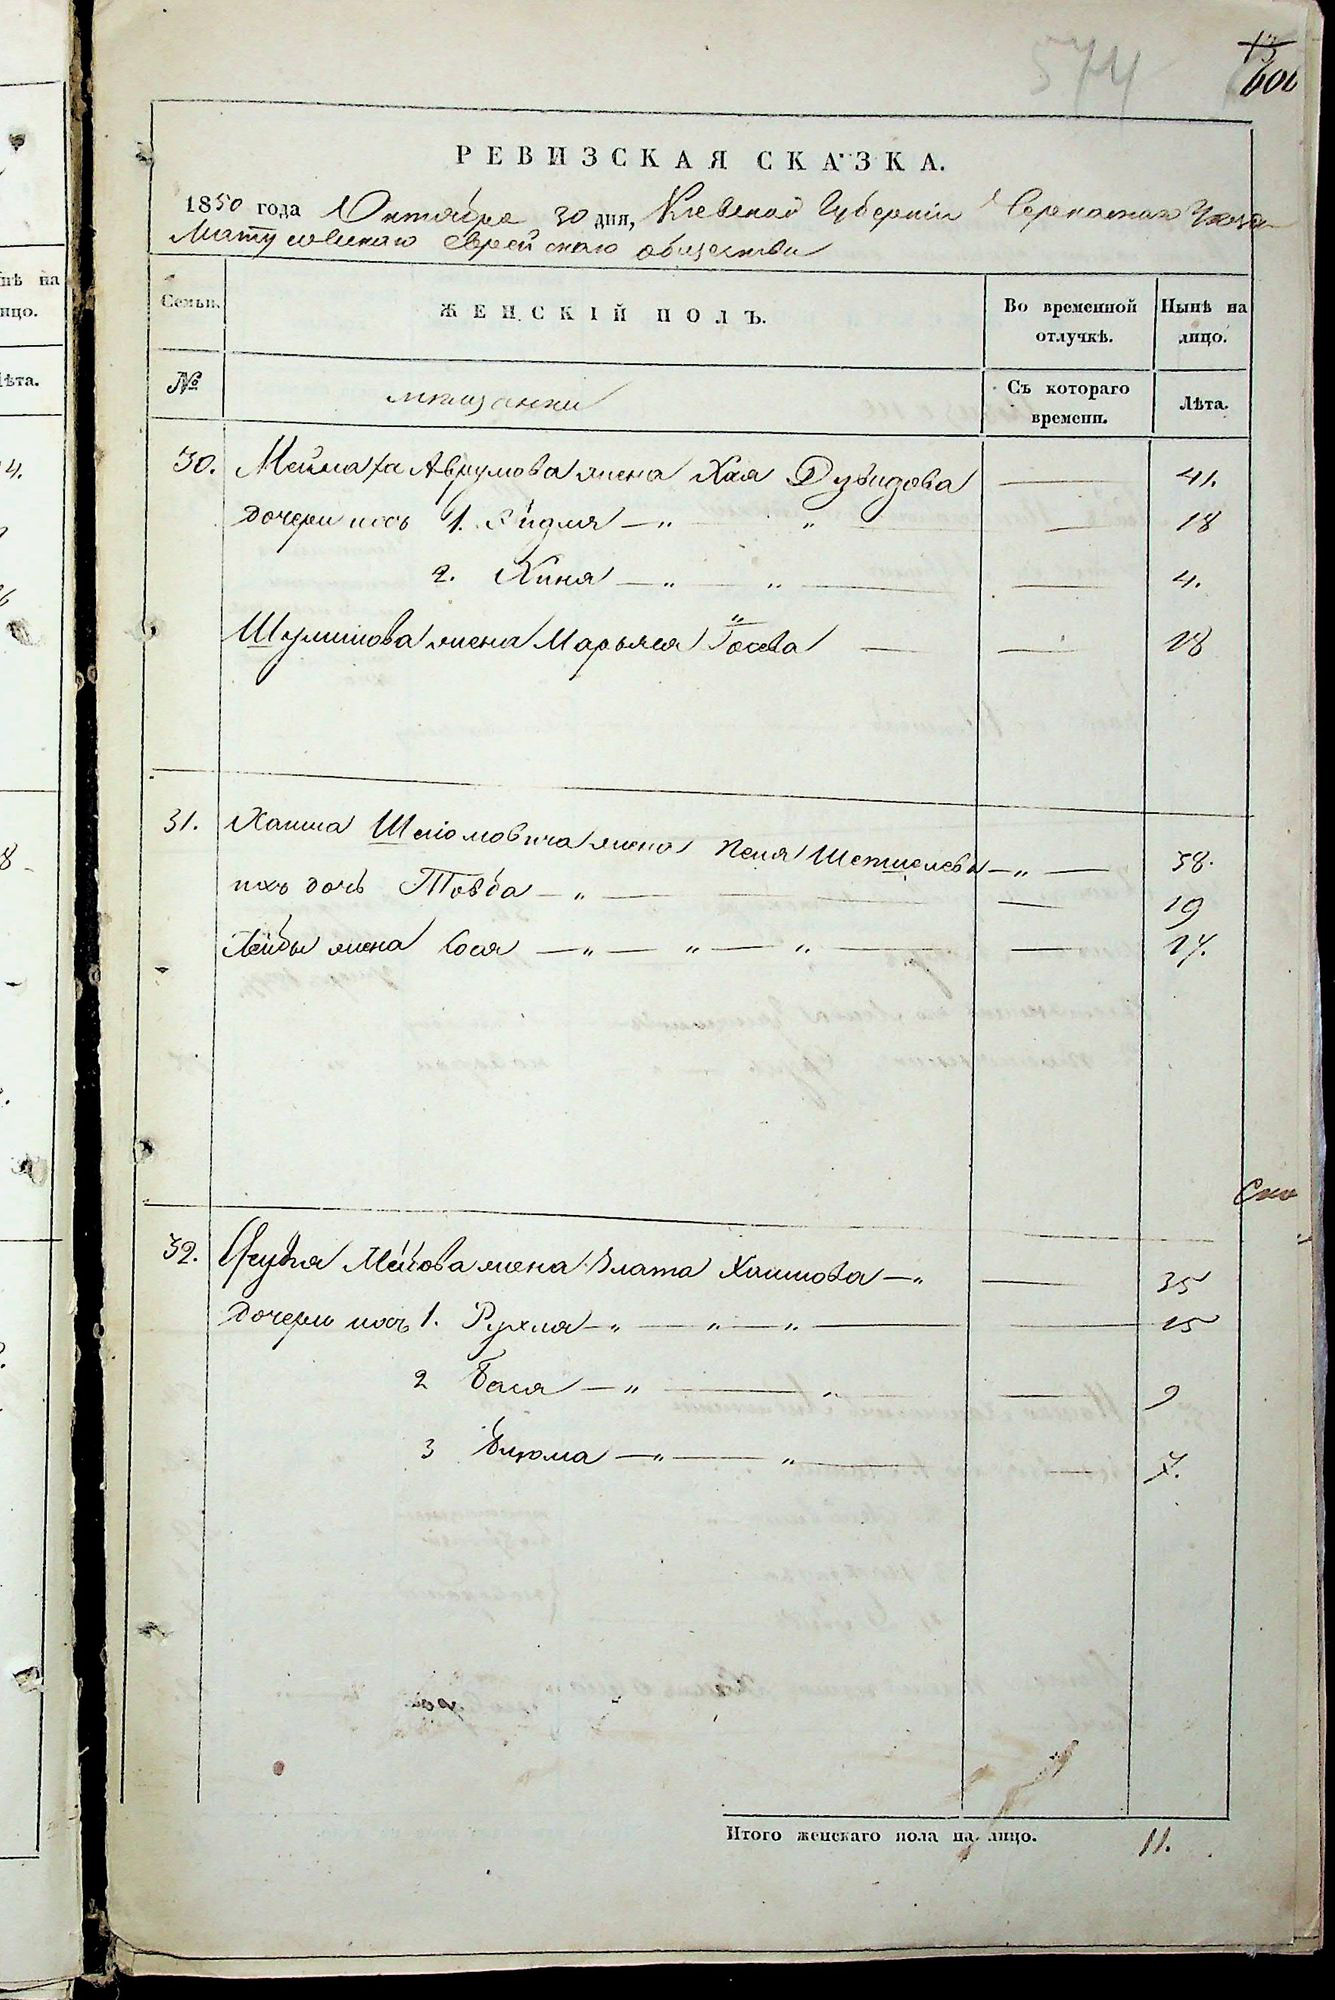 574
13
600
РЕВИЗСКАЯ СКАЗКА.
1850 года Октября 30 дня, Киевской Губернии Черкаскаго Уезда
Матусовскаго Еврейскаго общества
Семьи. ЖЕНСКІЙ ПОЛЪ. Во временной отлучкѣ. Нынѣ на лицо.
№ мещанки Съ котораго времени. Лѣта.
30. Авру­мова жена Хая Дувидова 41.
дочери ихъ 1. 18
2. Хиня — „ „ 4.
Шулимова жена Марьяся Іосева 18
31. Хаима Шліомовича жена Песя 38.
ихъ дочь Товба — „ 19
Лейбы жена Сося — „ — „ — „ 17.
32. Мейова жена Злата Хаимова — „ 35
дочери ихъ 1. Рухля — „ — „ — „ 15
2 Бася — „ — „ 9
3 Блюма — „ — „ 7.
Итого женскаго пола на лицо. 11.